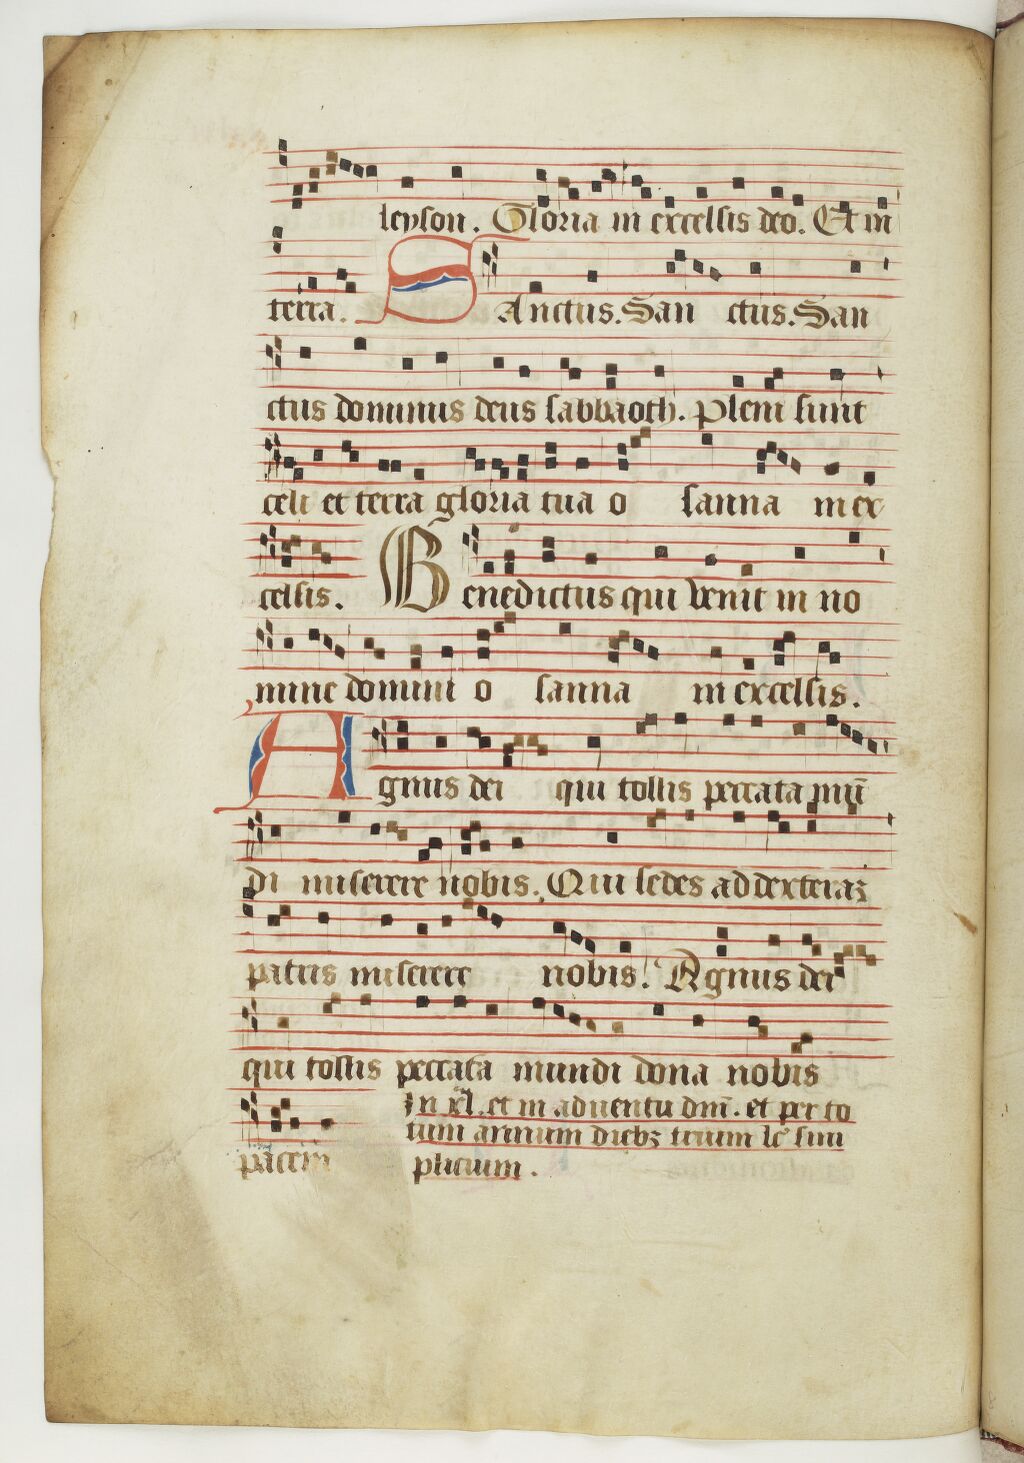 leyson. Gloria in excelsis deo. Et in
terra. SAnctus. San ctus. San
ctus dominus deus sabbaoth. Pleni sunt
celi et terra gloria tua o sanna in ex
celsis. Benedictus qui venit in no
mine domini o sanna in excelsis.
Agnus dei qui tollis peccata mū
di miserere nobis. Qui sedes ad dexteraꝫ
patris miserere nobis. Agnus dei
qui tollis peccata mundi dona nobis
pacem
et in aduentu dnī. et per to
tum annum diebꝫ trium lc̄ sim
plicium.